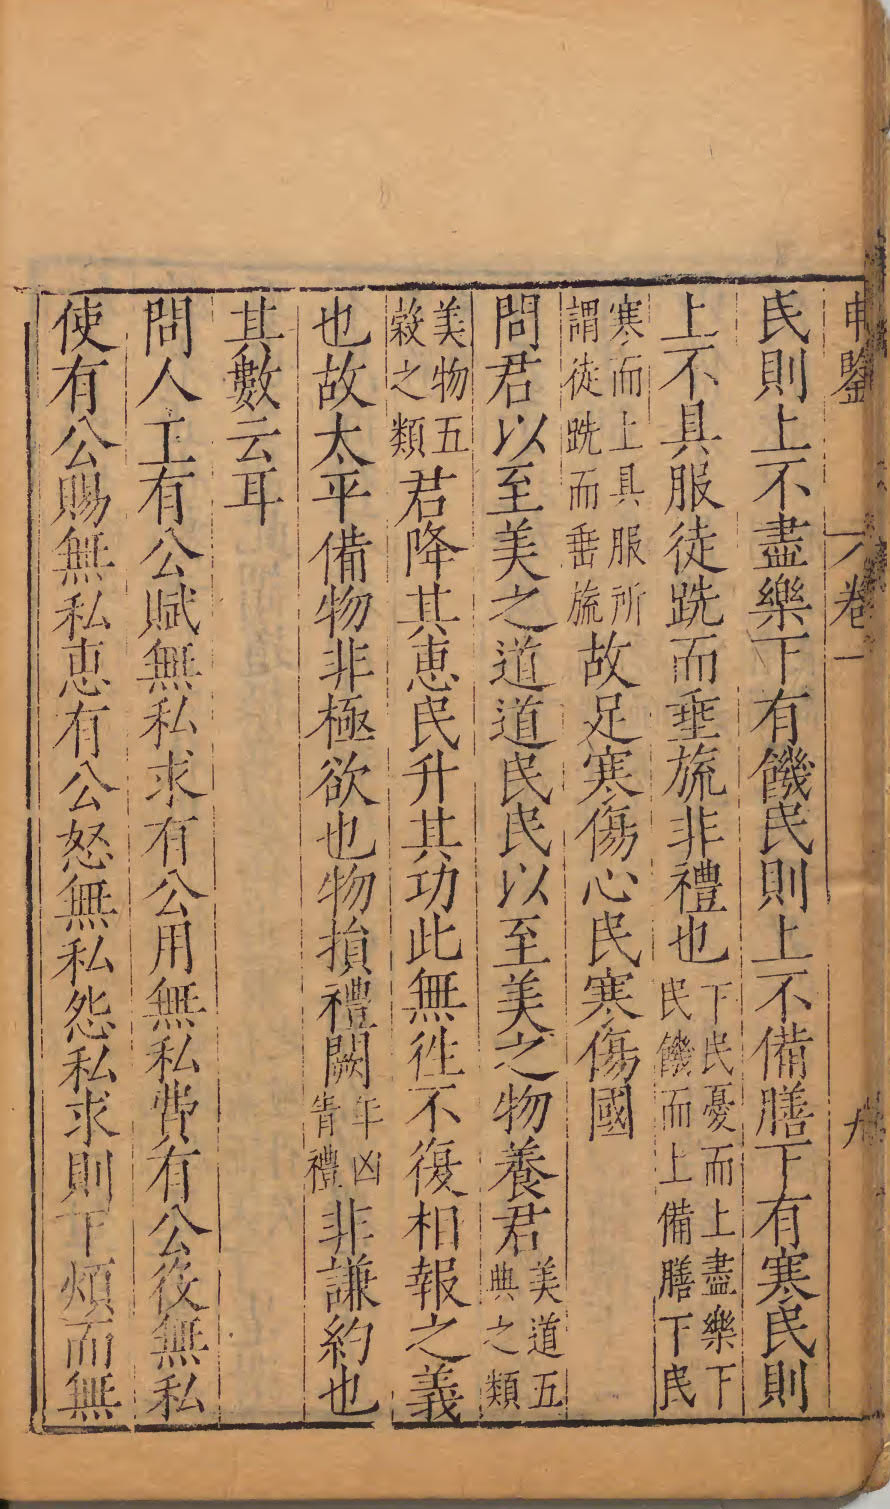 申鑒 卷一 九
民則上不盡樂下有饑民則上不備膳下有寒民則
上不具服徒跣而垂旒非禮也下民憂而上盡樂下民饑而上備膳下民
寒而上具服所謂徒跣而垂旒故足寒傷心民寒傷國
問君以至美之道道民民以至美之物養君美道五典之類
美物五穀之類君降其恵民升其功此無徃不復相報之義
也故太平備物非極欲也物損禮闕年凶眚禮非謙約也
其數云耳
問人主有公賦無私求有公用無私費有公役無私
使有公賜無私恵有公怒無私怨私求則下煩而無